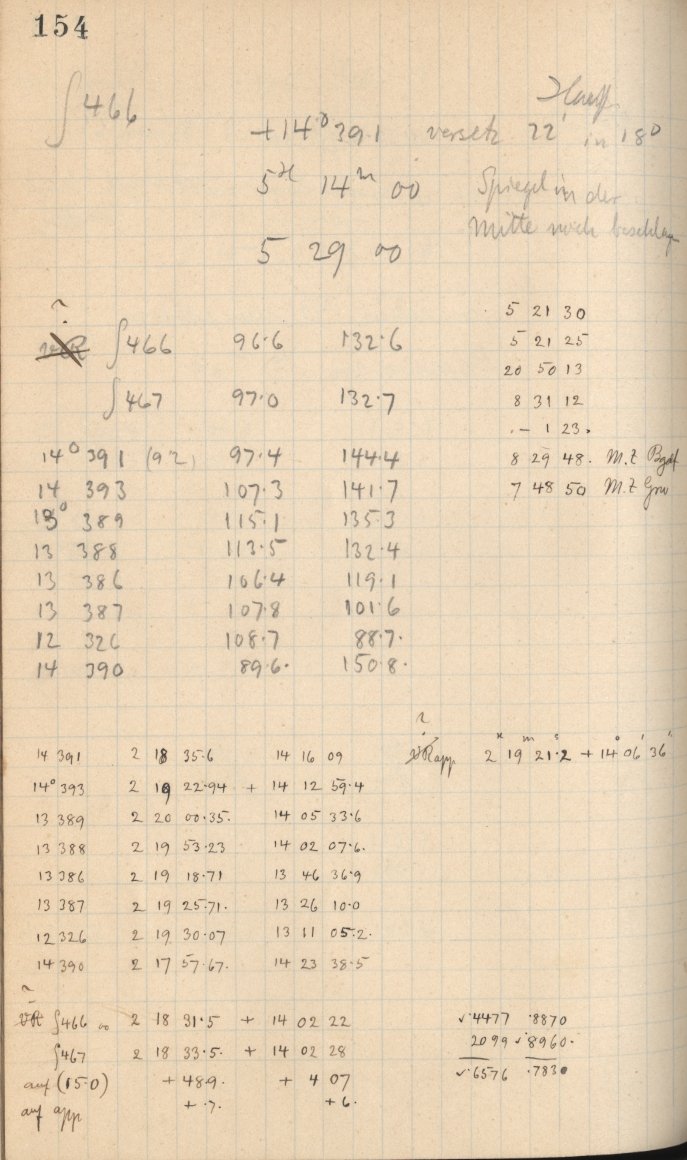 154
∫466
+14° 391 versetz 22' in 18°
5ʰ 14ᵐ 00 Spiegel in der
Mitte noch beschlag
5 29 00
5 21 30
∫466 96.6 132.6
5 21 25
20 50 13
∫467 97.0 132.7
8 31 12
- 1 23.
14° 391 (92) 97.4 144.4
8 29 48. M.Z Bgdf
14 393 107.3 141.7
7 48 50 M.Z Grw
13° 389 115.1 135.3
13 388 113.5 132.4
13 386 106.4 119.1
13 387 107.8 101.6
12 326 108.7 88.7.
14 390 89.6. 150.8.
14 391 2 18 35.6 14 16 09
app 2ʰ 19ᵐ 21.2ˢ + 14° 06' 36"
14° 393 2 19 22.94 + 14 12 59.4
13 389 2 20 00.35. 14 05 33.6
13 388 2 19 53.23 14 02 07.6.
13 386 2 19 18.71 13 46 36.9
13 387 2 19 25.71. 13 26 10.0
12 326 2 19 30.07 13 11 05.2.
14 390 2 17 57.67. 14 23 38.5
∫466 2 18 31.5 + 14 02 22
√.4477 .8870
∫467 2 18 33.5. + 14 02 28
2099 √.8960.
auf (15.0) + 48.9. + 4 07
√.6576 .7830
auf app + .7. + 6.